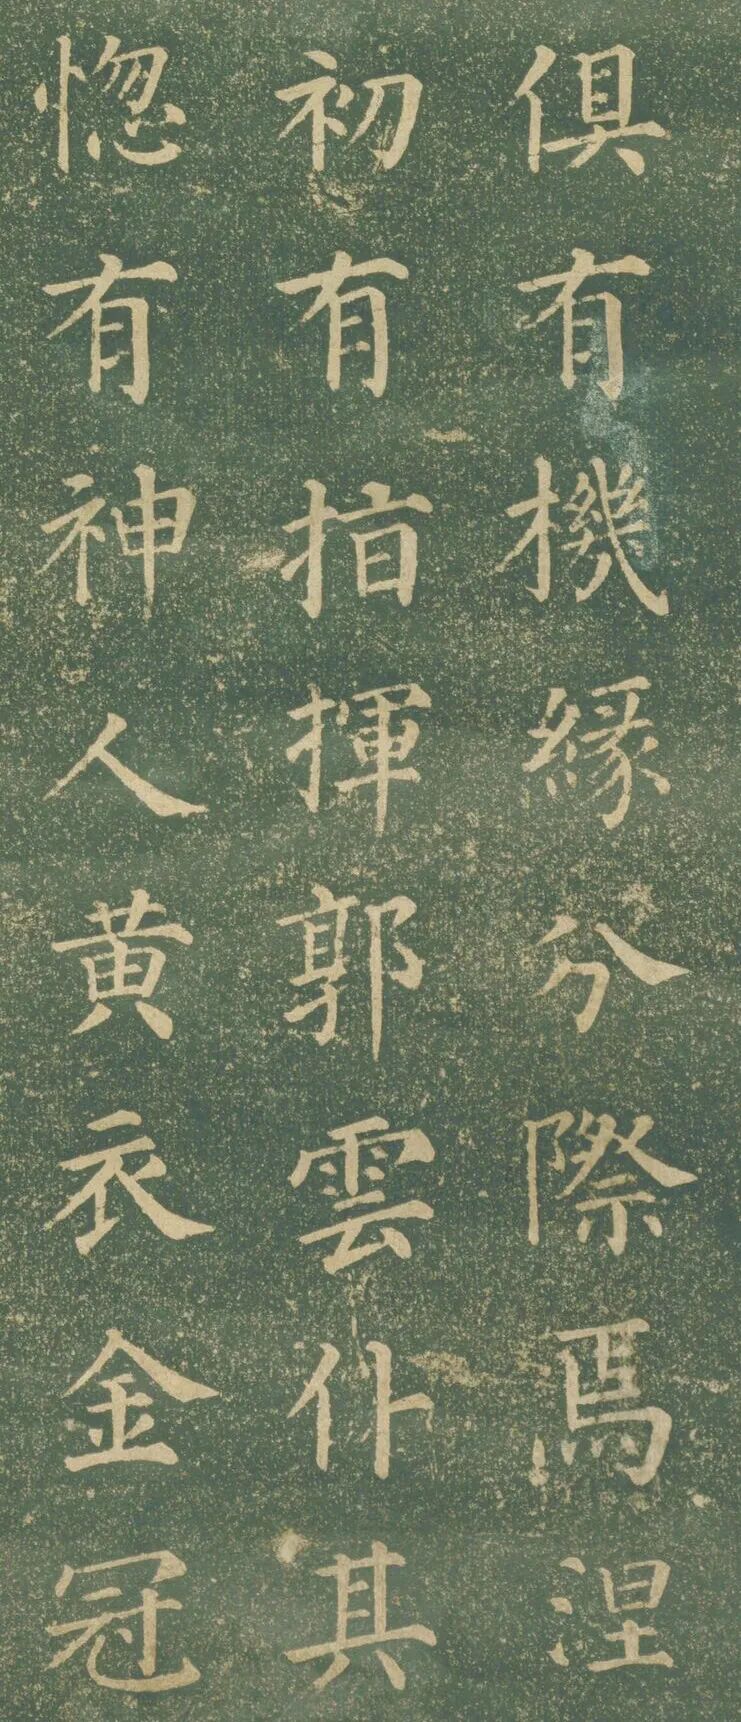 俱有機緣分際焉涅
初有指揮郭雲仆其
惚有神人黄衣金冠